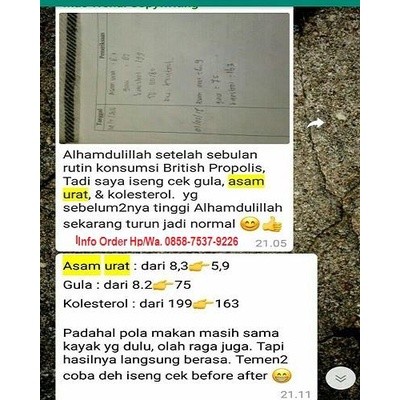 Tanggal
Pemeriksaan
Alhamdulillah setelah sebulan
rutin konsumsi British Propolis,
Tadi saya iseng cek gula, asam
urat, & kolesterol. yg
sebelum2nya tinggi Alhamdulillah
sekarang turun jadi normal 😊👍
Info Order Hp/Wa. 0858-7537-9226
21.05
Asam urat : dari 8,3👉5,9
Gula : dari 8.2👉75
Kolesterol : dari 199👉163
Padahal pola makan masih sama
kayak yg dulu, olah raga juga. Tapi
hasilnya langsung berasa. Temen2
coba deh iseng cek before after 😁
21.11